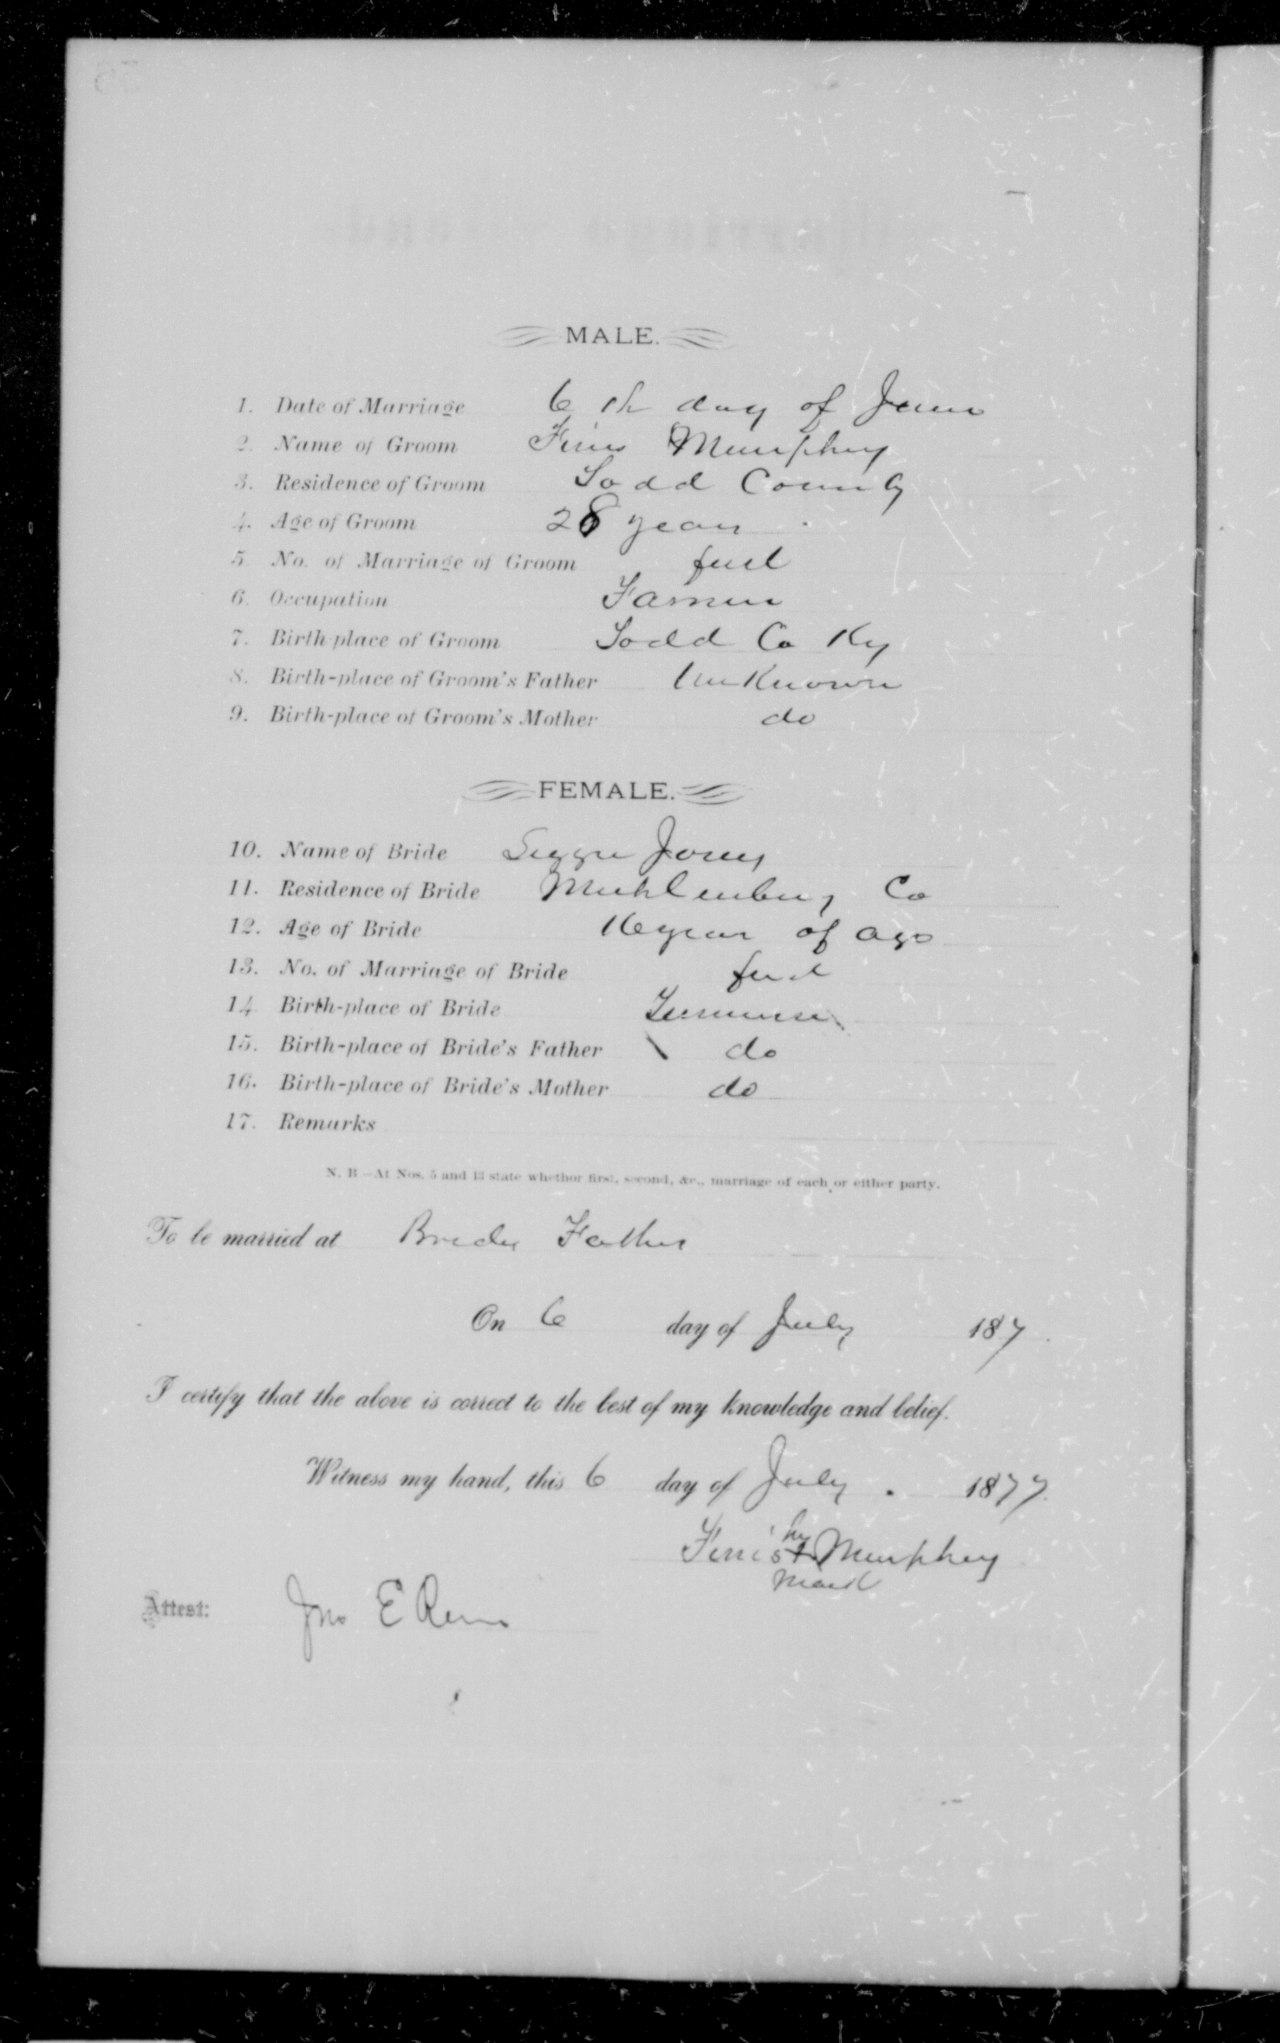 MALE.
1. Date of Marriage 6 th day of June
2. Name of Groom Finis Murphey
3. Residence of Groom Todd County
4. Age of Groom 28 years
5 No. of Marriage of Groom first
6. Occupation Farmer
7. Birth-place of Groom Todd Co Ky
8. Birth-place of Groom's Father Unknown
9. Birth-place of Groom's Mother do
FEMALE.
10. Name of Bride Jones
11. Residence of Bride Muhlenburg Co
12. Age of Bride 16 years of age
13. No. of Marriage of Bride first
14 Birth-place of Bride Tennessee
15. Birth-place of Bride's Father do
16. Birth-place of Bride's Mother do
17. Remarks
N. B—At Nos. 5 and 13 state whether first, second, &c., marriage of each or either party.
To be married at Brides Fathers
On 6 day of July 187
I certify that the above is correct to the best of my knowledge and belief.
Witness my hand, this 6 day of July. 1877.
his
Finis + Murphey
mark
Attest: Jno E